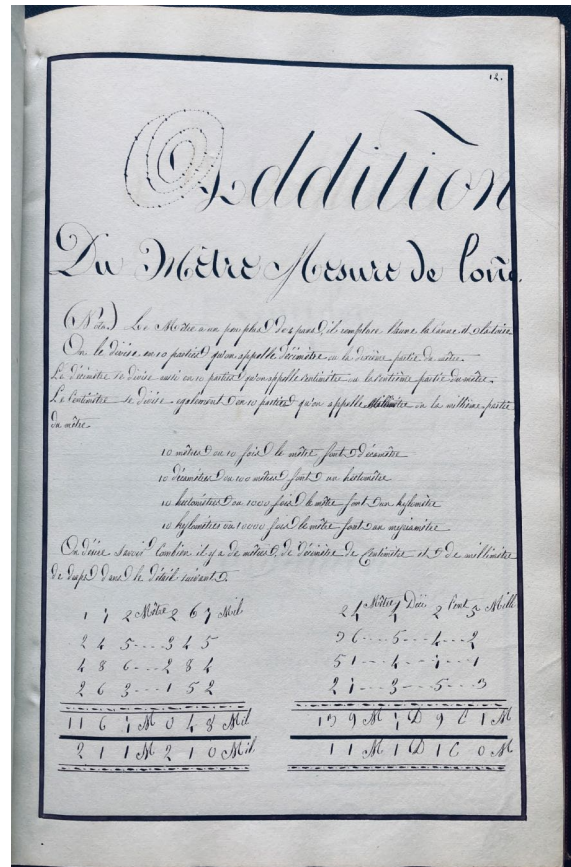 12.
Addition
Du Mètre Mesure de Loñg.
(Nota.) Le Mètre a un peu plus de 4 pans il remplace l'aune la canne et la toise
On le divise en 10 parties qu'on appelle décimètre ou la dixième partie du mètre.
Le décimètre se divise aussi en 10 parties qu'on appelle Centimètre ou la centième partie du mètre.
Le Centimètre se divise également en 10 parties qu'on appelle Millimètre ou la millième partie
du mètre
10 mètres ou 10 fois le mètre font 1 décamètre
10 décamètres ou 100 mètres font un hectomètre
10 hectomètres ou 1000 fois le mètre font un kylomètre
10 kylomètres ou 10000 fois le mètre font un myriamètre
On désire savoir Combien il y a de mètres, de décimètre de Centimètre et de millimètre
de draps dans le détail suivant.
1 7 2 Mètre 2 6 7 Mil
2 4 5 --- 3 4 5
4 8 6 --- 2 8 4
2 6 3 --- 1 5 2
1 1 6 7 M 0 4 8 Mil
2 1 1 M 2 1 0 Mil
2 4 Mètre 4 Déci 2 Cent 5 Mill
3 6 --- 5 --- 4 --- 2
5 1 --- 4 --- 7 --- 1
2 7 --- 3 --- 5 --- 3
1 3 9 M 7 D 9 C 1 M
1 1 M 1 D 1 C 0 M